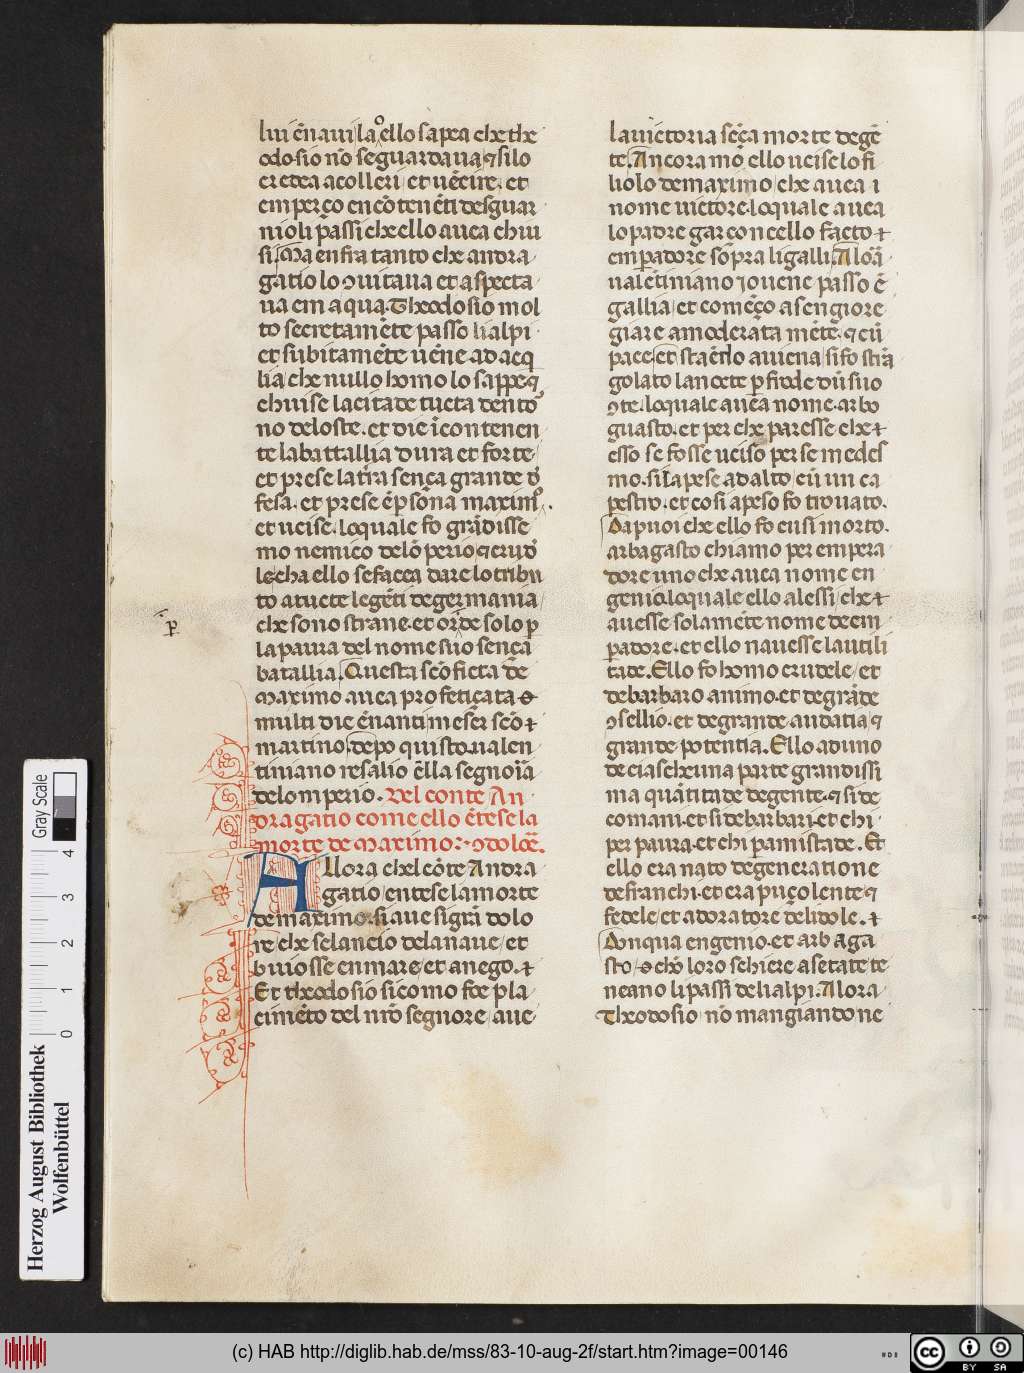 lui ēnauila ello sapea che the
odosio nō seguardaua ꝯ silo
credea acolleri et uēcire. et
emperço encōtenēti desguar
nioli passi che ello auea chiu
si. Ma enfra tanto che andra
gatio lo ꝯuitaua et aspecta
ua em aqua. Theodosio mol
to secretamēte passo li alpi
et subitamēte uēne ad acq
lia che nullo homo lo sappe ꝯ
chuise la citade tucta dentō
no deloste. et die ī contenen
te la battallia dura et forte
et prese la tr̄a sença grande d̄
fesa. et prese ēpsona maxim̄.
et ucise. loquale fo grādisse
mo nemico delō perio ꝯ crud̄
le cha ello se facea dare lo tribu
to a tucte le gēti de germania
che sono strane. et or̄de solo p̄
la paura del nome suo sença
batallia. Questa scōficta de
maximo auea profetiçata
multi die ēnanti meser scō
martino. depo quisto ualen
tiniano resalio ēlla segnoria
delomperio. Del conte An
dragatio come ello ētese la
morte de Maximo.
Allora chel cōte Andra
gatio entese la morte
de maximo. si aue sigrā dolo
re che se lancio dela naue et
buiosse en mare et anego.
Et theodosio si como foe pla
cimēto del nrō segnore aue
la uictoria sēça morte de gē
te. Ancora mō ello ucise lo fi
liolo de maximo che auea i
nome uictore. loquale auea
lo padre garconcello facto
emperadore sōpra li galli. Alorā
ualētiniano iouene passo ē
gallia et comēço a sengiore
giare amoderata mēte. ꝯ cū
pace et stādo a uiena si fo strā
golato la nocte per frode dūsuo
ꝯte. loquale auea nome. arbo
guasto. et per che paresse che
esso se fosse uciso per se medes
mo. si la pese ad alto cū un ca
pestro. et cosi apeso fo trouato.
Da puoi che ello fo cusi morto.
arbagasto chiamo per empera
dore uno che auea nome en
genio. loquale ello alessi che
auesse solamēte nome de em
peradore. et ello nauesse la utili
tade. Ello fo homo crudele et
de barbaro animo. et de grāde
ꝯsellio. et de grande audatia ꝯ
grande potentia. Ello aduno
de ciascheuna parte grandissi
ma quātitade de gente. ꝯ si de
comani. et si de barbari. et chi
per paura. et chi per amistade. Et
ello era nato de generatione
de franchi. et era puço lente ꝯ
fedele et adoratore de lidole.
Dunqua engenio. et arbaga
sto che loro schiere asetate te
neano li passi de li alpi. Alora
Theodosio nō mangiando ne
p̄
Herzog August Bibliothek
Wolfenbüttel
Gray Scale
0 1 2 3 4
(c) HAB http://diglib.hab.de/mss/83-10-aug-2f/start.htm?image=00146
cc BY SA